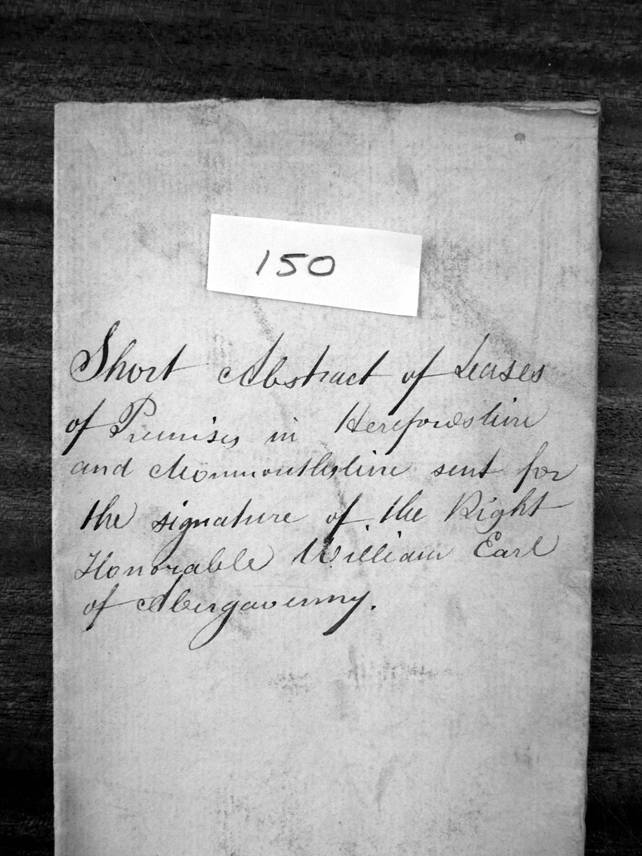 150
Short Abstract of Leases
of Premises in Herefordshire
and Monmouthshire sent for
the signature of the Right
Honorable William Earl
of Abergavenny.